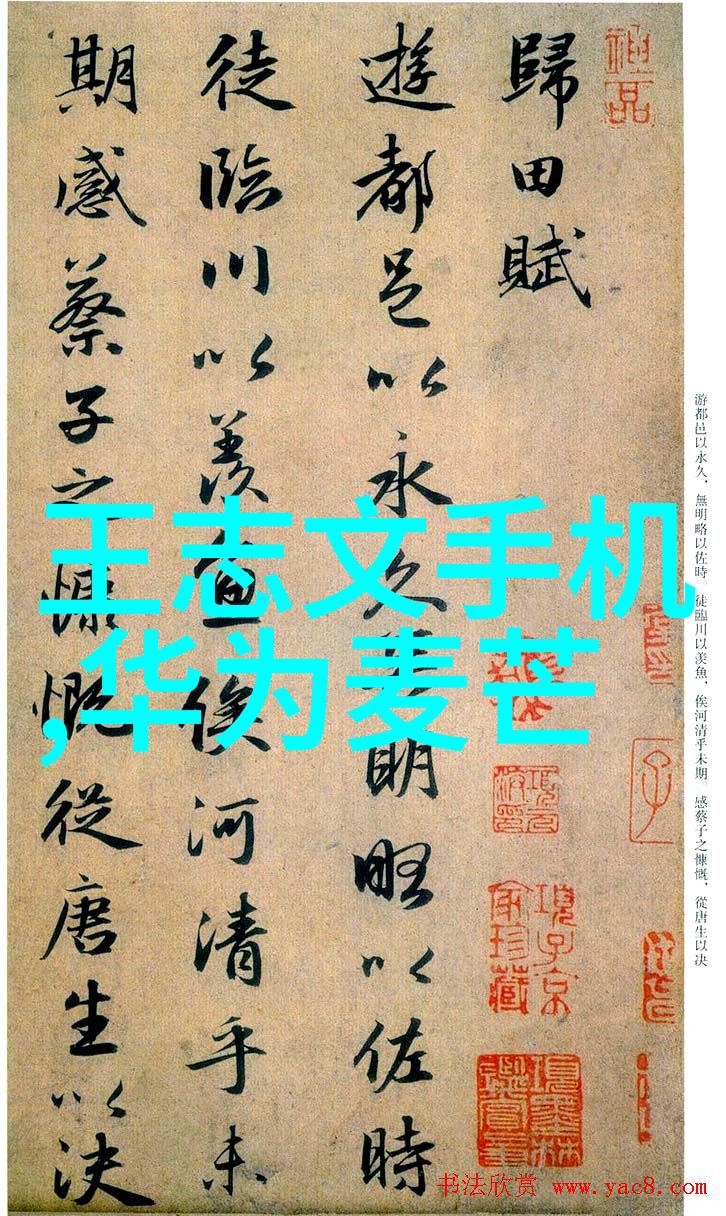 歸田賦
遊都邑以永久無明略以佐時
徒臨川以羨魚俟河清乎未
期感蔡子之慷慨從唐生以決
王志文手机
,华为麦芒
游都邑以永久，無明略以佐時。徒臨川以羨魚，俟河清乎未期。感蔡子之慷慨，從唐生以决
神品
項子京家珍藏
項墨林鑑賞章
书法欣赏 www.yac8.com